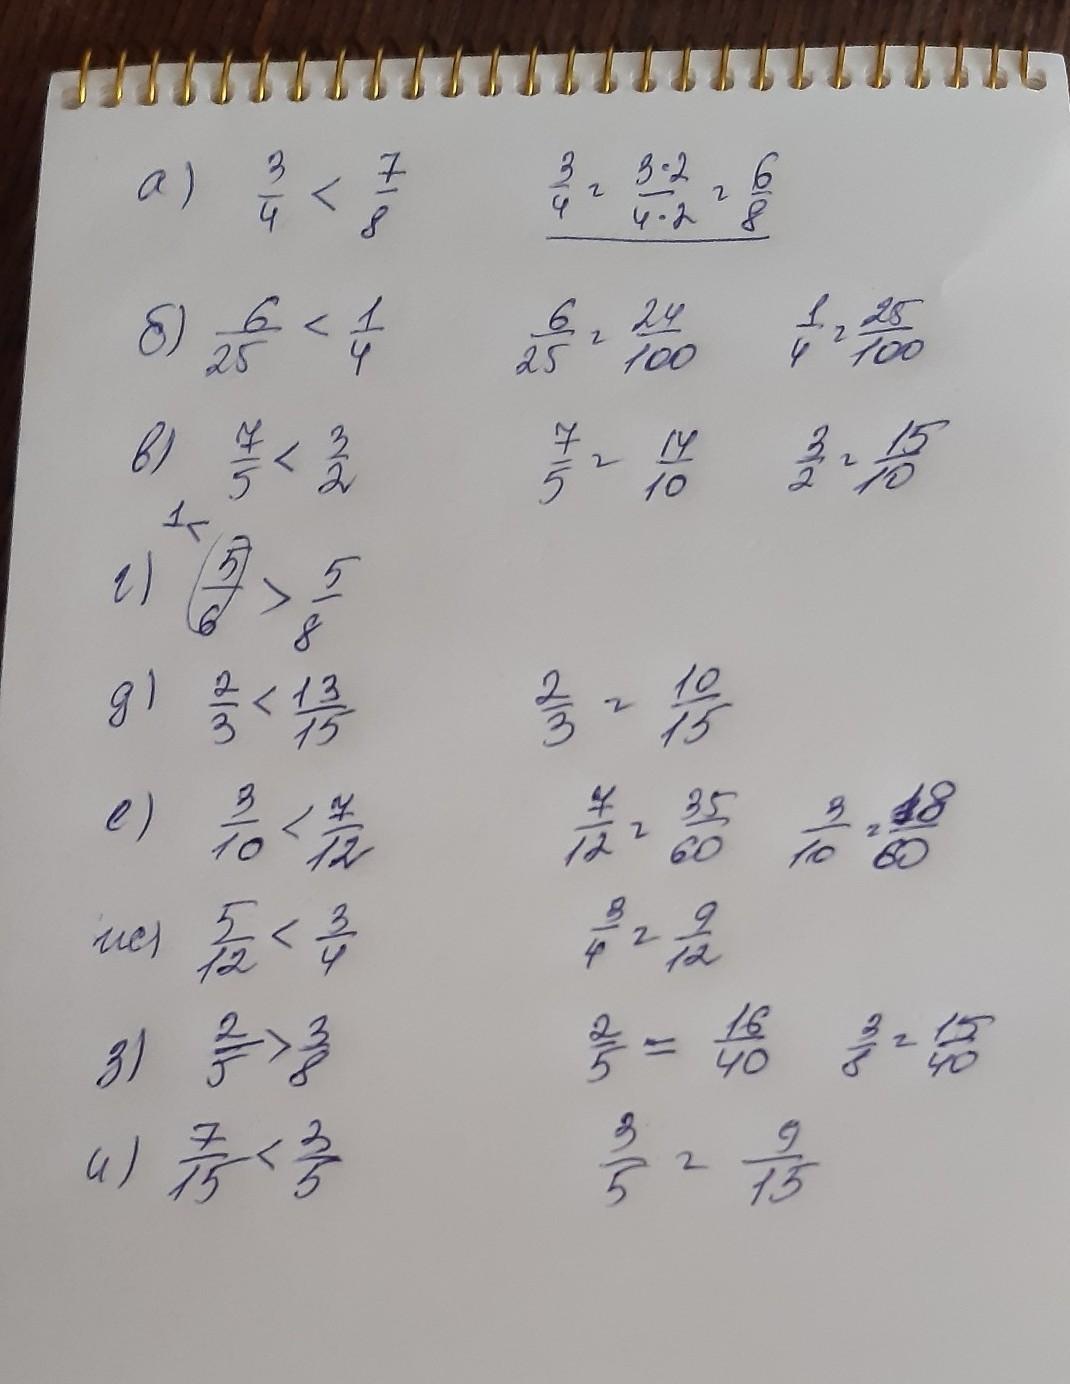 а) 3/4 < 7/8 3/4 = 3·2/4·2 = 6/8
б) 6/25 < 1/4 6/25 = 24/100 1/4 = 25/100
в) 7/5 < 3/2 7/5 = 14/10 3/2 = 15/10
1<
г) (5/6) > 5/8
д) 2/3 < 13/15 2/3 = 10/15
е) 3/10 < 7/12 7/12 = 35/60 3/10 = 18/60
ж) 5/12 < 3/4 3/4 = 9/12
з) 2/5 > 3/8 2/5 = 16/40 3/8 = 15/40
и) 7/15 < 3/5 3/5 = 9/15